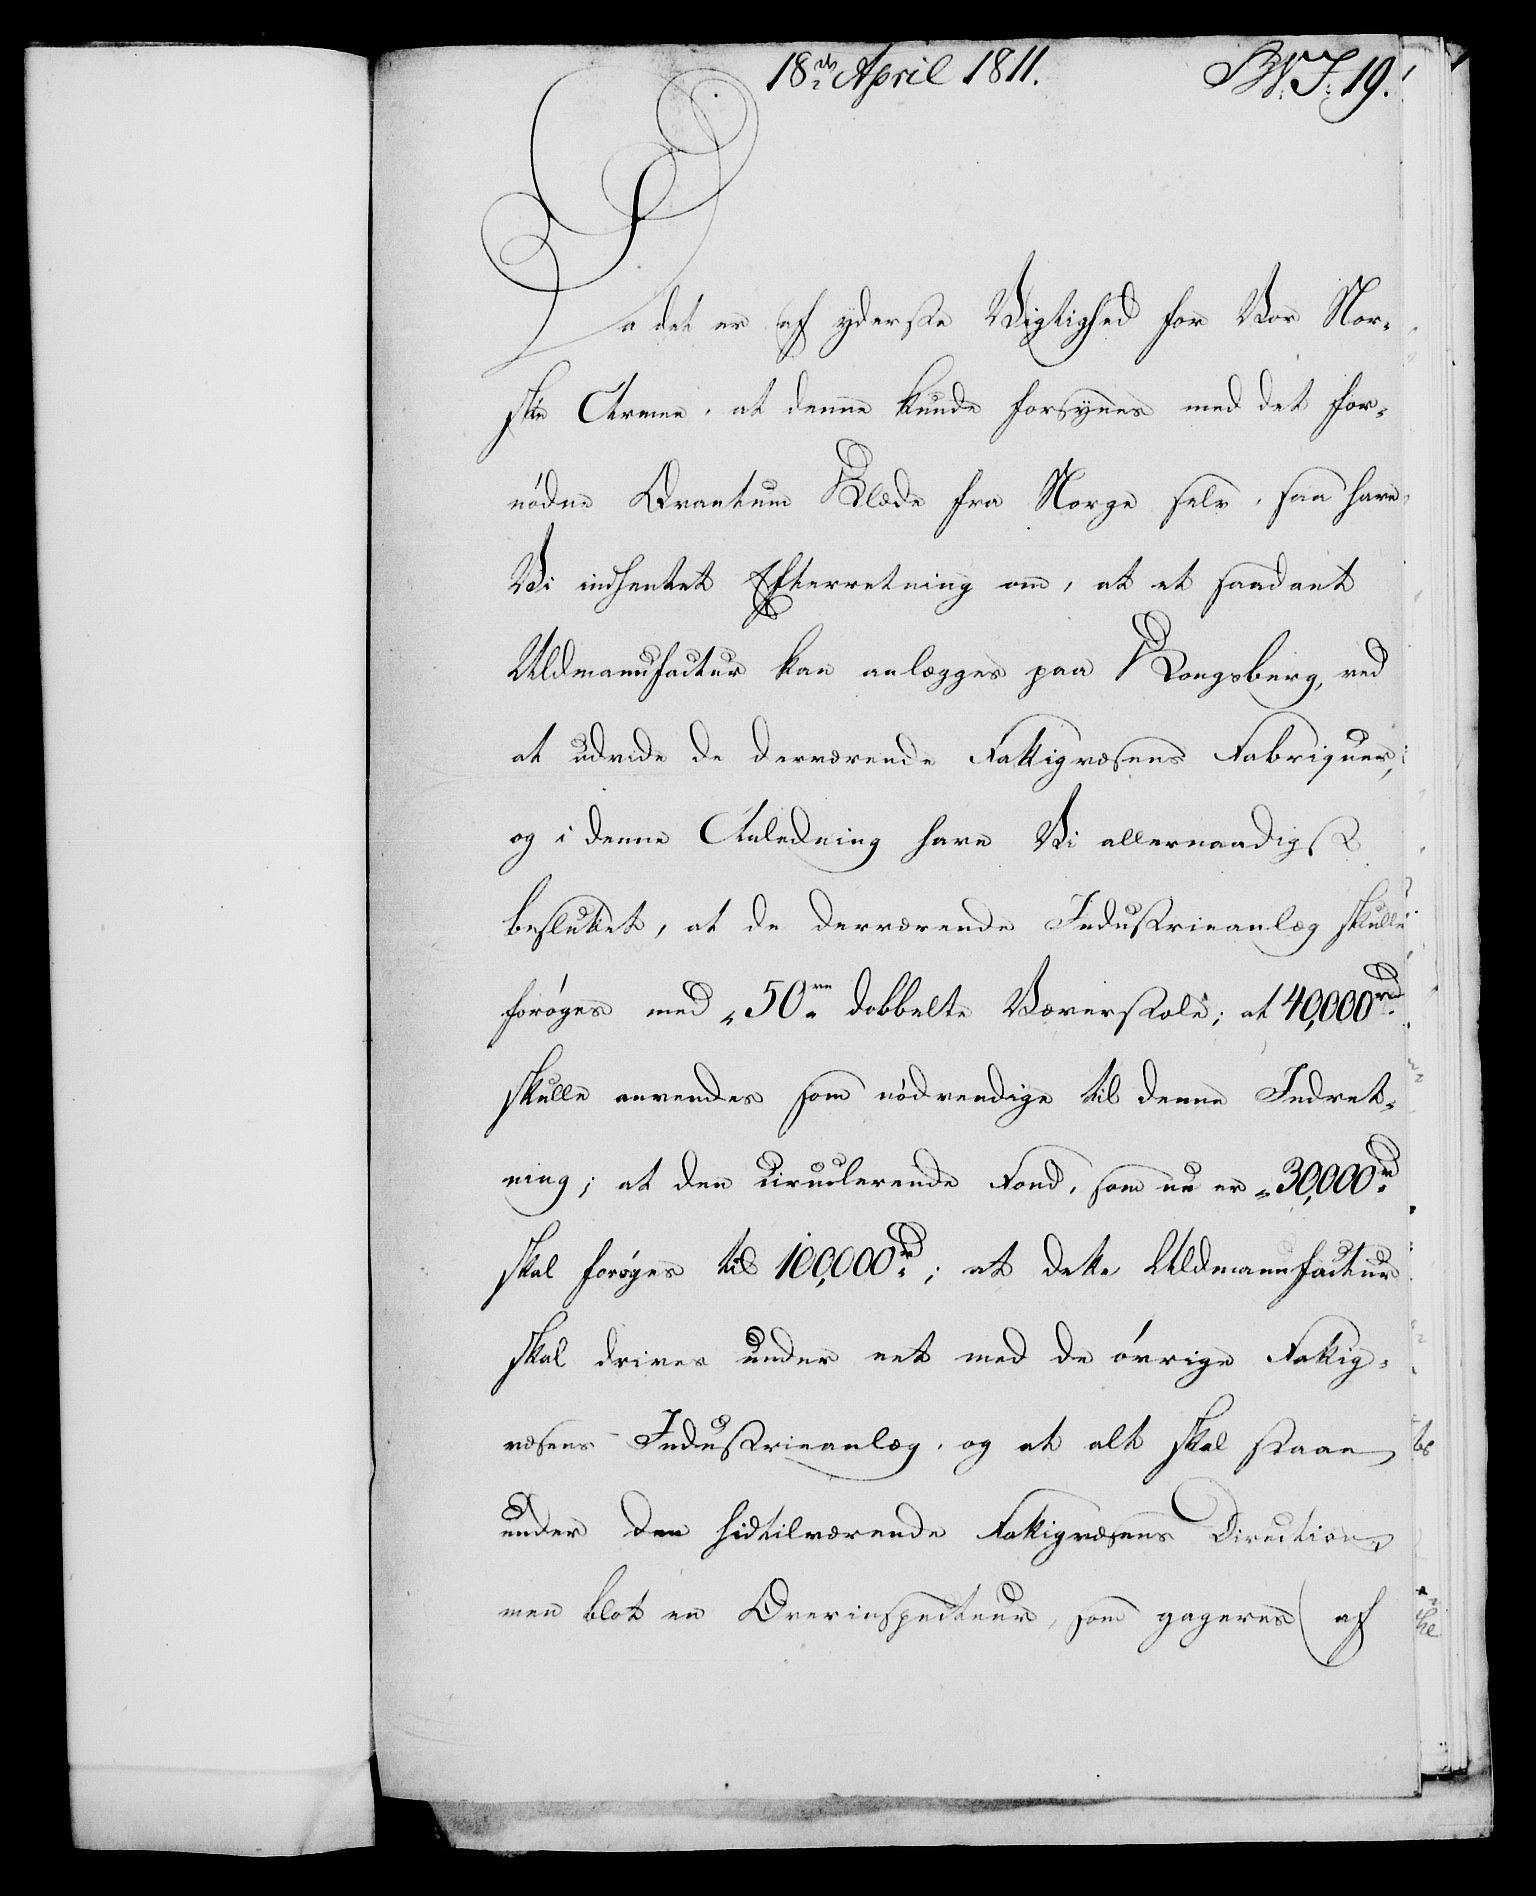 18de April 1811.
19.
Da det er af yderste Vigtighed for Vor Nor-
ske Armee, at denne kunde forsynes med det for-
nödne Qvantum Klæde fra Norge selv, saa have
Vi indhentet Efterretning om, at et saadant
Uldmanufactur kan anlægges paa Kongsberg, ved
at udvide de derværende Fattigvæsens Fabriquer,
og i denne Anledning have Vi allernaadigst
besluttet, at de derværende Industrieanlæg skulle
foröges med 50 dobbelte Væverstole; at 40,000 rd
skulle anvendes som nödvendige til denne Indret-
ning; at den circulerende Fond, som nu er 30,000 rd
skal foröges til 100,000 rd; at dette Uldmanufactur
skal drives under eet med de övrige Fattig-
væsens Industrieanlæg, og at alt skal staae
under den hidtilværende Fattigvæsens Direction,
men blot en Overinspecteur, som gageres af